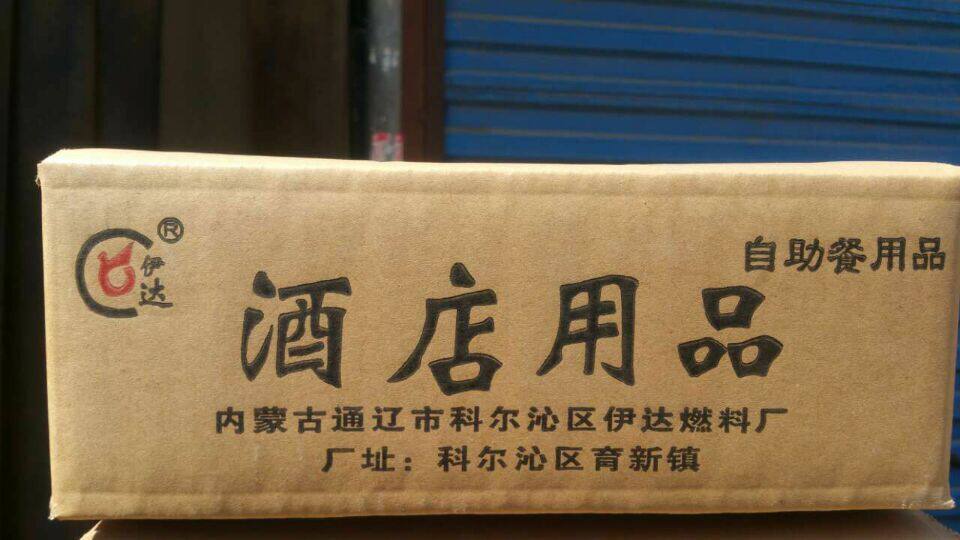 ®
伊达
自助餐用品
酒店用品
内蒙古通辽市科尔沁区伊达燃料厂
厂址：科尔沁区育新镇